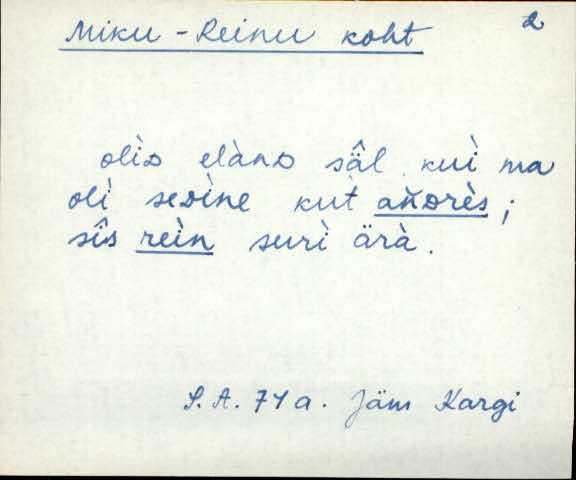 2
Miku-Reinu koht
olìᴅ elànᴅ sä̂l kuì ma
olì seᴅìne kut̀ añᴅrès;
sîs reìn surì ärà.
S. A. 74 a. Jäm Kargi